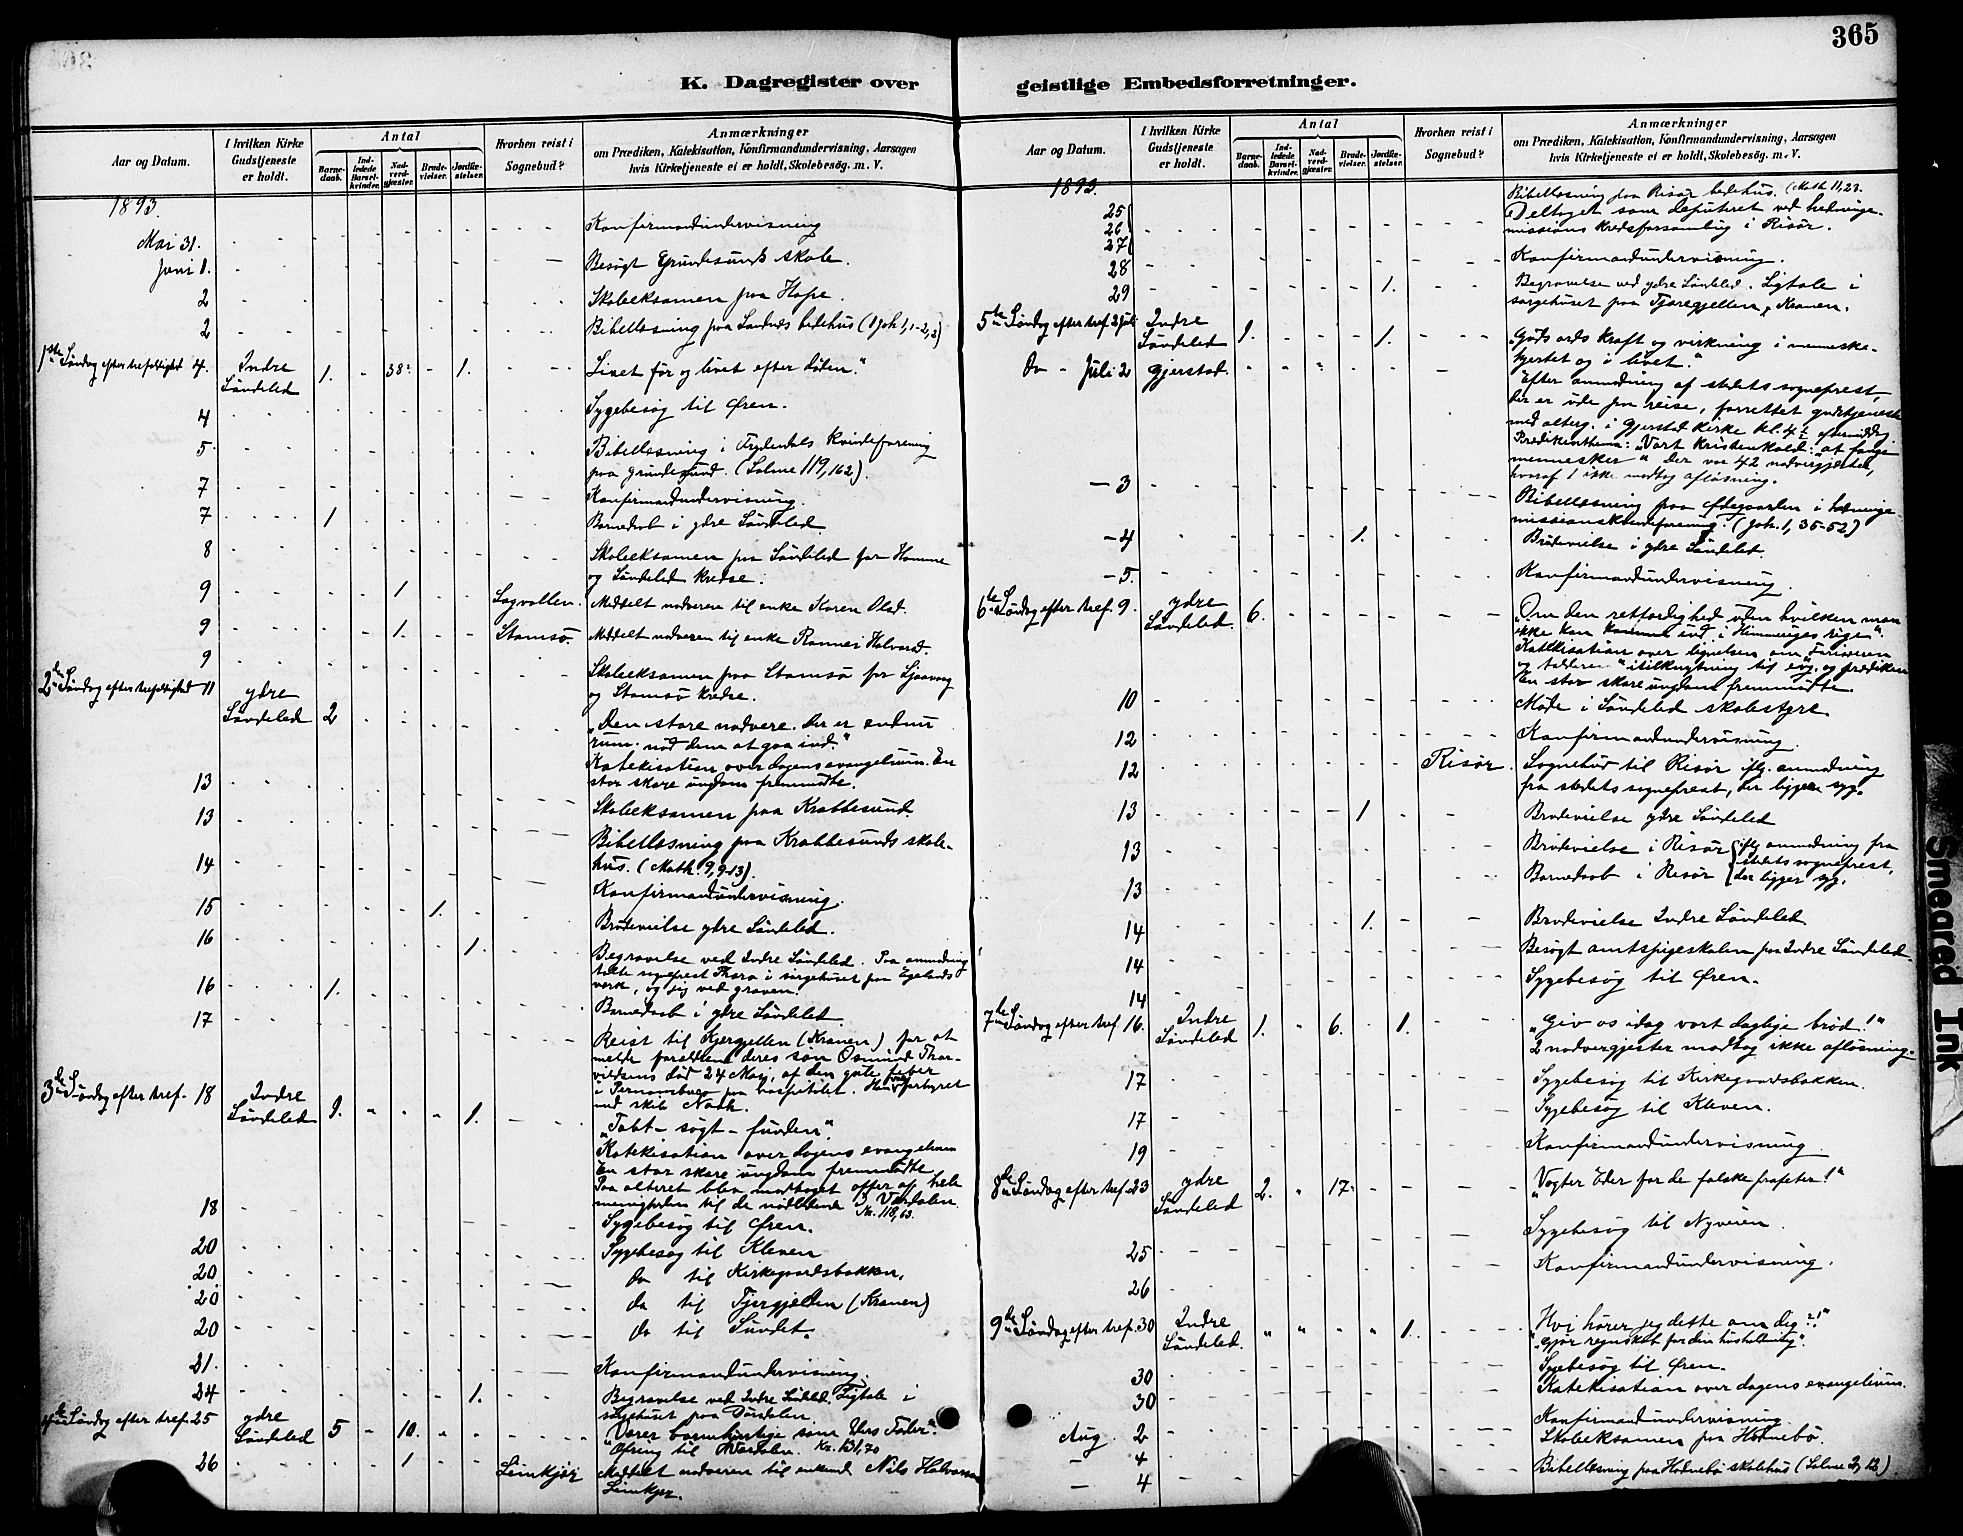 365
K. Dagregister over geistlige Embedsforretninger.
Aar og Datum.
I hvilken Kirke Gudstjeneste er holdt.
Antal
Barnedaab.
Indledede Barselkvinder.
Nadverdgjæster.
Brudevielser.
Jordfæstelser.
Hvorhen reist i Sognebud?
Anmærkninger
om Prædiken, Katekisation, Konfirmandundervisning, Aarsagen
hvis Kirketjeneste ei er holdt, Skolebesøg. m. V.
1893.
Mai 31. Konfirmandundervisning
Juni 1. Besøgt Grundesunds skole.
2 Skoleeksamen paa Hope.
2 Bibellæsning paa Søndeleds bedehus (1 Joh. 1,1-2,2)
1ste Søndag efter trefoldighed 4. Indre Søndeled 1. 38. 1. "Livet før og livet efter døden."
4 Sygebesøg til Øren.
5 Bibellæsning i Frydendals kvindeforening
paa Grundesund. (Salme 119,162).
7 Konfirmandundervisning.
7 1 Barnedaab i ydre Søndeled.
8 Skoleeksamen paa Søndeled for Hamme
og Søndeled kredse.
9 1 Lagvollen. Meddelt nadveren til enke Karen Olsd.
9 1. Stamsø. Meddelt nadveren til enke Ronnei Halvorsd.
9 Skoleeksamen paa Stamsø for
og Stamsø kredse.
2den Søndag efter trefoldighed 11 ydre Søndeled 2 "Den store nadvere. Der er endnu
rum; nød dem at gaa ind."
Katekisation over dagens evangelium. En
stor skare ungdom fremmødte.
13 Skoleeksamen paa Krabbesund.
13 Bibellæsning paa Krabbesunds skole-
hus. (Math. 9,9-13).
14 Konfirmandundervisning.
15 1. Brudevielse ydre Søndeled.
16 1. Begravelse ved Indre Søndeled. Paa anmodning
talte sogneprest i sørgehuset paa Egelands
verk, og jeg ved graven.
16 1. Barnedaab i ydre Søndeled.
17 Reist til Kjergjellen (Kranen) for at
melde forældrene deres søn Osmund Thor-
vildsens død 24 Mai, af den gule feber
i Pernambuco paa hospitalet. Han var forhyret
med skib Noah.
3die Søndag efter tref. 18 Indre Søndeled 1. 1. "Tabt - søgt - funden".
Katekisation over dagens evangelium
En stor skare ungdom fremmødte
Paa alteret blev modtaget offer af hele
menigheden til de nødlidende i Værdalen.
Kr. 118,63.
18 Sygebesøg til Øren.
20 Sygebesøg til Kleven
20 do til Kirkegaardsbakken.
20 do til Tjergjellen (Kranen)
20 do til Sundet.
21. Konfirmandundervisning.
24 1. Begravelse ved Indre Søndeled. Ligtale i
sørgehuset paa Dørdalen.
4de Søndag efter tref. 25 ydre Søndeled 5 10. "Værer barmhjertige som Eders Fader".
Ofring til Værdalen. Kr. 131,70
26 1 Leinkjær Meddelt nadveren til enkemd Nils Halvorsen
Leinkjær.
Aar og Datum.
I hvilken Kirke Gudstjeneste er holdt.
Antal
Barnedaab.
Indledede Barselkvinder.
Nadverdgjæster.
Brudevielser.
Jordfæstelser.
Hvorhen reist i Sognebud?
Anmærkninger
om Prædiken, Katekisation, Konfirmandundervisning, Aarsagen
hvis Kirketjeneste ei er holdt, Skolebesøg. m. V.
1893.
Bibellæsning paa Risør bedehus. (Math 11,28.
25
26
27
Deltaget som deputeret ved hedninge-
missions kredsforsamling i Risør.
28 Konfirmandundervisning.
29 1. Begravelse ved ydre Søndeled. Ligtale i
sørgehuset paa Tjøregjellen, Kranen.
5te Søndag efter tref. 2 Juli Indre Søndeled 1. 1. "Guds ords kraft og virkning i menneske-
hjertet og i livet."
Do - Juli 2 Gjerstad. Efter anmodning af stedets sogneprest,
der er ude paa reise, forrettet gudstjeneste
med alterg. i Gjerstad kirke kl. 4½ eftermiddag.
Prædikenthema: "Vort kristenkald: at fange
mennesker." Der var 42 nadvergjæster,
hvoraf 1 ikke modtog afløsning.
- 3 Bibellæsning paa Ødegaarden i hedninge-
missionskvindeforening. (Joh. 1, 35-52)
- 4 1. Brudevielse i ydre Søndeled.
- 5. Konfirmandundervisning.
6te Søndag efter tref. 9. ydre Søndeled. 6. "Om den retfærdighed uden hvilken man
ikke kan komme ind i Himmeriges rige".
Katekisation over lignelsen om Farisæeren
og tolderen "i tilknytning til ev. og prædiken
En stor skare ungdom fremmødte.
10 Møde i Søndeled skolestyre.
12 Konfirmandundervisning.
12 Risør. Sognebud til Risør iflg. anmodning
fra stedets sogneprest, der ligger syg.
13 1 Brudevielse ydre Søndeled
13 Brudevielse i Risør
13 Barnedaab i Risør
iflg anmodning fra
stedets sogneprest,
der ligger syg.
14 1. Brudevielse Indre Søndeled
14 Besøgt amtspigeskolen paa Indre Søndeled.
14 Sygebesøg til Øren.
7de Søndag efter tref. 16. Indre Søndeled 1. 6. 1. "Giv os idag vort daglige brød!"
2 nadvergjester modtog ikke afløsning.
17 Sygebesøg til Kirkegaardsbakken.
17 Sygebesøg til Kleven.
19 Konfirmandundervisning.
8de Søndag efter tref. 23 ydre Søndeled 2. 17. "Vogter Eder for de falske profeter!"
25 Sygebesøg til Nyveien.
26 Konfirmandundervisning.
9de Søndag efter tref. 30 Indre Søndeled. 1. "Hvi hører jeg dette om dig?"
"Gjør regnskab for din husholdning".
30 Sygebesøg til Øren.
30 Katekisation over dagens evangelium.
Aug. 2 Konfirmandundervisning
- 4 Skoleeksamen paa Hødnebø.
- 4 Bibellæsning paa Hødnebø skolehus (Salme 2,12)
Smeared Ink